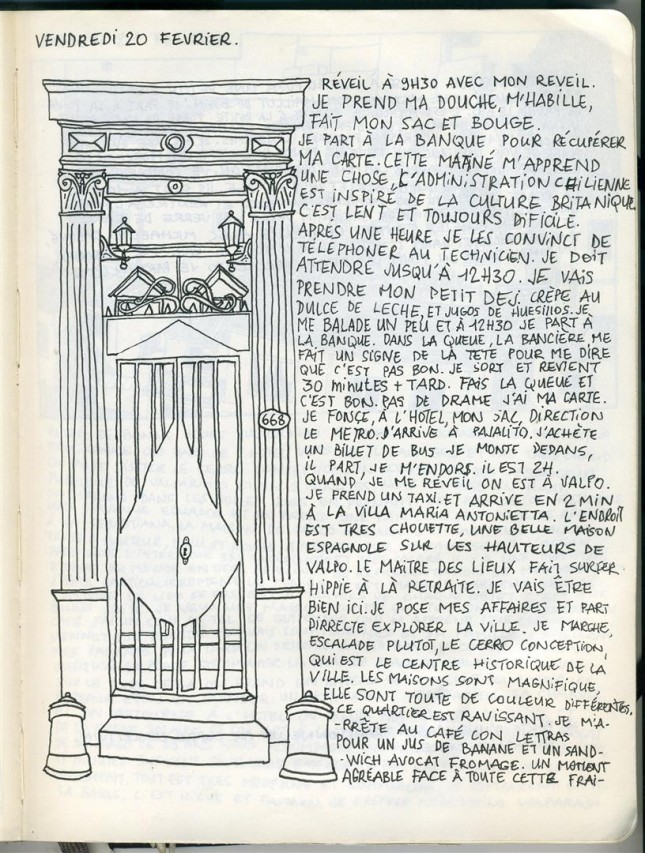 VENDREDI 20 FEVRIER.
RÉVEIL À 9H30 AVEC MON REVEIL.
JE PREND MA DOUCHE, M'HABILLE,
FAIT MON SAC ET BOUGE.
JE PART À LA BANQUE POUR RÉCUPÉRER
MA CARTE. CETTE MATINÉ M'APPREND
UNE CHOSE, L'ADMINISTRATION CHILIENNE
EST INSPIRÉ DE LA CULTURE BRITANIQUE,
C'EST LENT ET TOUJOURS DIFICILE.
APRÈS UNE HEURE JE LES CONVINCT DE
TELEPHONER AU TECHNICIEN. JE DOIT
ATTENDRE JUSQU'À 12H30. JE VAIS
PRENDRE MON PETIT DEJ CRÈPE AU
DULCE DE LECHE, ET JUGOS DE HUESILLOS. JE
ME BALADE UN PEU ET À 12H30 JE PART À
LA BANQUE. DANS LA QUEUE, LA BANCIÈRE ME
FAIT UN SIGNE DE LA TETE POUR ME DIRE
QUE C'EST PAS BON. JE SORT ET REVIENT
30 minutes + TARD. FAIS LA QUEUE ET
C'EST BON. PAS DE DRAME J'AI MA CARTE.
JE FONCE, À L'HOTEL, MON SAC, DIRECTION
LE METRO. J'ARRIVE À PAJALITO. J'ACHÈTE
UN BILLET DE BUS JE MONTE DEDANS,
IL PART, JE M'ENDORS. IL EST 2H.
QUAND JE ME RÉVEIL ON EST À VALPO.
JE PREND UN TAXI. ET ARRIVE EN 2 MIN
À LA VILLA MARIA ANTONIETTA. L'ENDROIT
EST TRES CHOUETTE, UNE BELLE MAISON
ESPAGNOLE SUR LES HAUTEURS DE
VALPO. LE MAITRE DES LIEUX FAIT SURFER
HIPPIE À LA RETRAITE. JE VAIS ÊTRE
BIEN ICI. JE POSE MES AFFAIRES ET PART
DIRRECTE EXPLORER LA VILLE. JE MARCHE,
ESCALADE PLUTOT, LE CERRO CONCEPTION,
QUI EST LE CENTRE HISTORIQUE DE LA
VILLE. LES MAISONS SONT MAGNIFIQUE,
ELLE SONT TOUTE DE COULEUR DIFFÉRENTES.
CE QUARTIER EST RAVISSANT. JE M'A-
-RRÊTE AU CAFÉ CON LETTRAS
POUR UN JUS DE BANANE ET UN SAND-
-WICH AVOCAT FROMAGE. UN MOMENT
AGRÉABLE FACE À TOUTE CETTE FRAI-
668